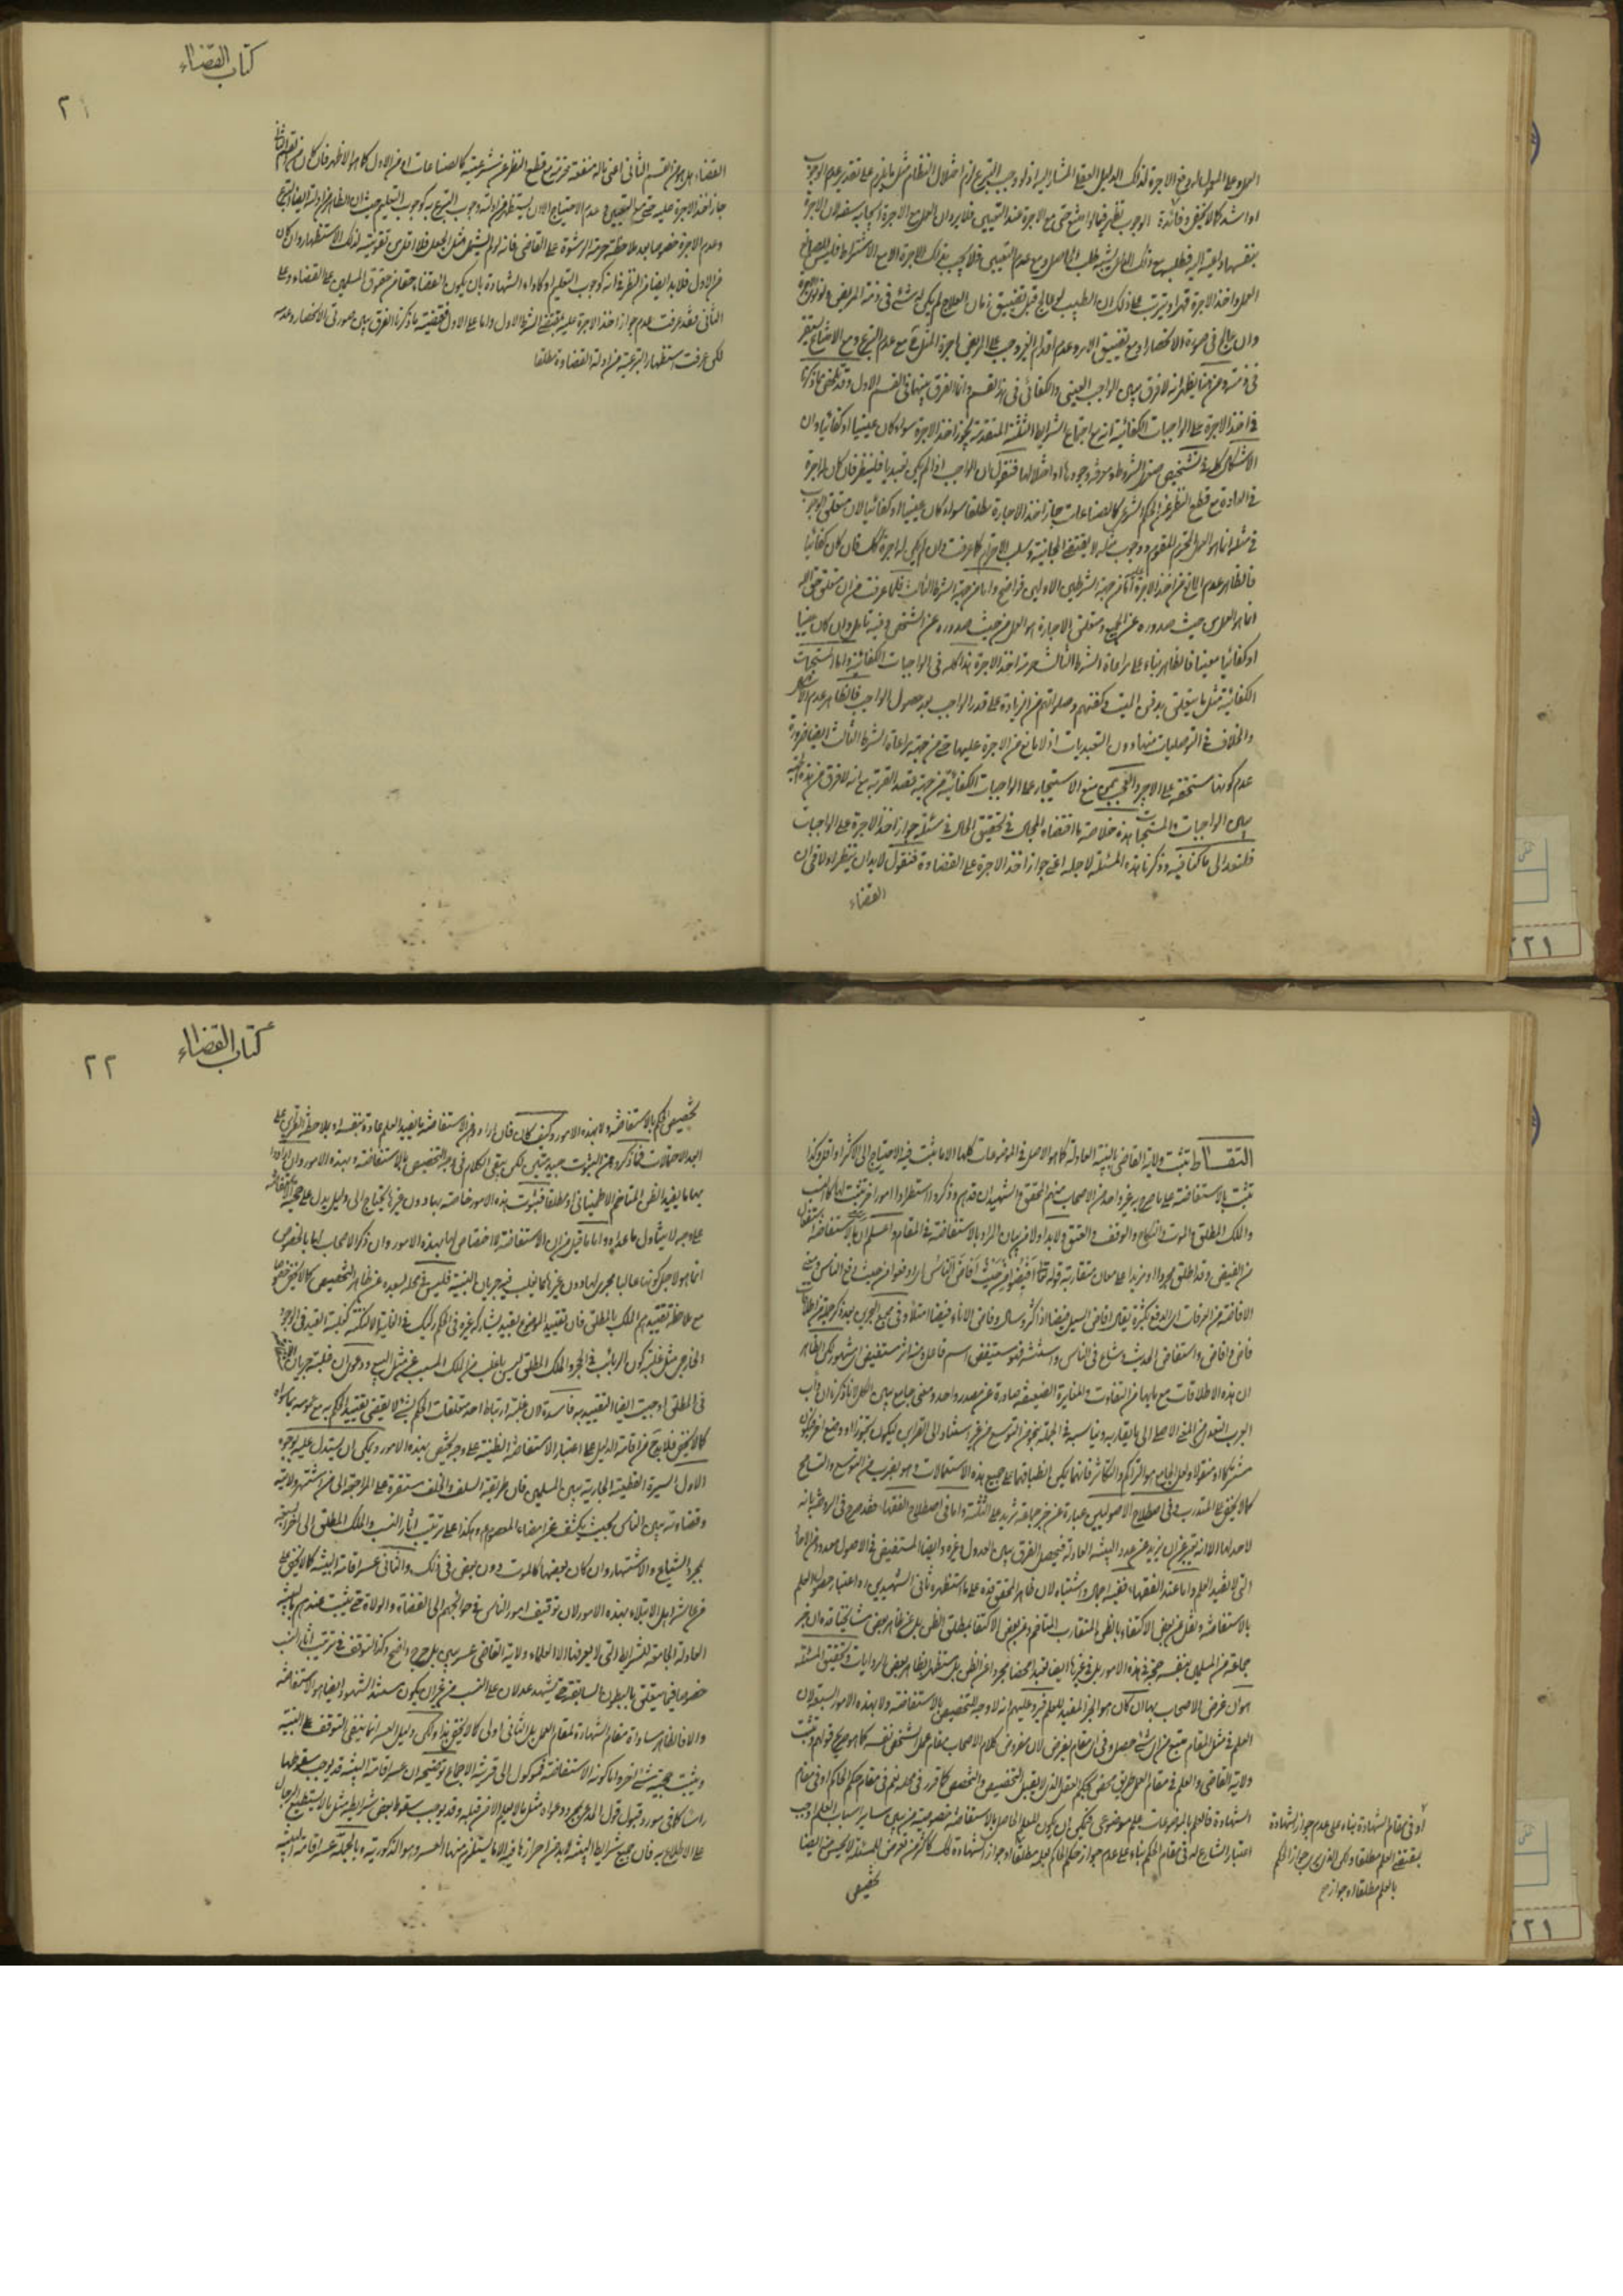 كتاب القضاء
٢١
العلاوة على السؤال لدفع الاجرة لذلك الدليل العقلي المشار اليه اذ لو وجب التبرع لزم اختلال النظام مثل ما يلزم على تقدير عدم الوجوب
او اشد كما لا يخفى وفائدة الوجوب تظهر فيما لو امتنع حتى مع الاجرة عند التعيين فلا يرد ان العمل مع الاجرة
العمل واخذ الاجرة قهرا ويترتب على ذلك ان الطبيب لو عالج قبل تضييق زمان العلاج لم يكن له شئ في ذمة المريض
وان عالج في صورة الانحصار او مع تضييق الامر وعدم اقدام الغير وجب على المريض اجرة المثل مع عدم التبرع ومع الامتناع
في ذمته ومن هنا يظهر انه لا فرق بين الواجب العيني والكفائي في هذا القسم وانما الفرق بينهما في القسم الاول وقد تلخص مما ذكرنا
في اخذ الاجرة على الواجبات الكفائية انه مع اجتماع الشرايط الثلثة المتقدمة يجوز اخذ الاجرة سواء كان عينيا او كفائيا وان
الاشكال كله في تشخيص الشروط ومعرفة وجودها او اختلالها فنقول ان الواجب اذا لم يكن تعبديا فلينظر فان كان له اجرة
في العادة مع قطع النظر عن الحكم الشرعي كالصناعات جاز اخذ الاجارة مطلقا سواء كان عينيا او كفائيا لان متعلق الوجوب
في مثله انما هو العمل المحترم المتقوم ووجوب بذله لا يقتضي المجانية وسلب الاحترام كما عرفت وان لم يكن له اجرة كك فان كان كفائيا
فالظاهر عدم المانع من اخذ الاجرة عليه اما من جهة الشرطين الاولين فواضح واما من جهة الشرط الثالث فلما عرفت من ان متعلق حق الله
انما هو العمل من حيث صدوره عن الجميع ومتعلق الاجارة هو العمل من حيث صدوره عن الشخص وفيه تامل وان كان عينيا
او كفائيا معينا فالظاهر بناء على مراعاة الشرط الثالث حرمة اخذ الاجرة هذا كله في الواجبات الكفائية واما المستحبات
الكفائية مثل ما يتعلق بدفن الميت وكفنهم وصلواتهم من الزيادة على قدر الواجب بعد حصول الواجب فالظاهر عدم الاشكال
والخلاف في التوصليات منها دون التعبديات اذ لا مانع من الاجرة عليها حتى من جهة مراعاة الشرط الثالث ايضا ضرورة
عدم كونها مستحقة على الاجير والعجب ممن منع الاستيجار على الواجبات الكفائية من جهة قصد القربة مع انه لا فرق من هذه الجهة
بين الواجبات والمستحبات هذه خلاصة ما اقتضاه المجال في تحقيق الحال في مسئلة جواز اخذ الاجرة على الواجبات
فلنعد الى ما كنا فيه وذكرنا هذه المسئلة لاجله اعني جواز اخذ الاجرة على القضاوة فنقول لا بد ان ينظر اولا في ان
القضاء
القضاء هل هو من القسم الثاني اعني ما له منفعة محترمة مع قطع النظر عن شرعيته كالصناعات او من الاول كما هو الاظهر فان كان من القسم الثاني
جاز اخذ الاجرة عليه حتى مع التعيين وعدم الاحتياج الا ان يستظهر من ادلته وجوب التبرع به كوجوب التعليم
وعدم الاجرة خصوصا بعد ملاحظة حرمة الرشوة على القاضي فانه لو لم يشتمل مثل الجعل فلا اقل من تقويته لذلك الاستظهار وان كان
من الاول فلا بد ايضا من النظر في انه كوجوب التعليم او كاداء الشهادة بان يكون القضاء حقا من حقوق المسلمين على القضاة وعلى
الثاني فقد عرفت عدم جواز اخذ الاجرة عليه بمقتضى الشرط الاول واما على الاول فمقتضى ما ذكرنا الفرق بين صورتي الانحصار وعدمه
لكن عرفت استظهار التبرعية من ادلة القضاوة مطلقا
كتاب القضاء
٢٢
التقاط تثبت ولاية القاضي بالبينة العادلة كما هو الاصل في الموضوعات كلها الا ما يثبت فيه الاحتياج الى الاكثر او اقل وكذا
تثبت بالاستفاضة على ما صرح به غير واحد من الاصحاب منهم المحقق والشهيدان قدهم وذكروا استطرادا امورا اخر تثبت بها كالنسب
والملك المطلق والموت والنكاح والوقف والعتق ولا بد اولا من بيان المراد بالاستفاضة في المقام واعلم ان الاستفاضة استفعال
من الفيض وقد اطلق مجردا او مزيدا على معان متقاربة قوله تعالى افيضوا من حيث افاض الناس اي ادفعوا من حيث دفع الناس
الافاضة من العرفات اي الدفع بكثرة يقال افاض السيل فيضا اذا كثر وسال وفاض الاناء فيضا امتلأ وفي مجمع البحرين بعد ذكر جملة من اطلاقات
فاض وافاض واستفاض الحديث وشاع في الناس وانتشر فهو مستفيض اسم فاعل ومنه امر مستفيض اي مشهور لكن الظاهر
ان هذه الاطلاقات مع ما بها من التفاوت والمغايرة الضعيفة صادرة عن مصدر واحد ومعنى جامع بين الكل لما ذكرنا ان دأب
العرب التعدي عن المعنى الاصلي الى ما يقاربه ويناسبه في الجملة بنحو من التوسع من غير استناد الى القراين ليكون تجوزا او وضع اخر ليكون
مشتركا او منقولا ولعل الجامع هو التراكم والتكاثر فانهما يمكن انطباقهما على جميع هذه الاستعمالات وهو بضرب من التوسع والتسامح
كما لا يخفى على المتدرب وفي اصطلاح الاصوليين عبارة عن خبر جماعة تزيد على الثلثة واما في اصطلاح الفقهاء فقد صرح في الروضة بانه
لا حد لها الا انه يعتبر ان يزيد عن عدد البينة العادلة فيحصل الفرق بين العدول وغيره وايضا المستفيض في الاصول معدود من الاحاد
التي لا تفيد العلم واما عند الفقهاء ففيه اجمال واشتباه لان ظاهر المحقق قده على ما استظهره ثاني الشهيدين ره اعتبار حصول العلم
بالاستفاضة ونقل عن بعض الاكتفاء بالظن المتقارب المتاخم وعن بعض الاكتفاء بمطلق الظن
جماعة من المسلمين بنفسه حجة في هذه الامور بل في غيرها ايضا تعبدا محضا مجردا عن الظن بل مستظهرا بظاهر بعض الروايات وتحقيق المسئلة
هو ان غرض الاصحاب بها ان كان هو الخبر المفيد للعلم فيرد عليهم انه لا وجه للتخصيص بالاستفاضة ولا بهذه الامور السبعة لان
العلم في مثل المقام متبع من اي شئ حصل وفي اي مقام يفرض لان مفروض كلام الاصحاب مقام عمل الشخص نفسه كما هو صريح قولهم وتثبت
ولاية القاضي والعلم في مقام العمل طريق محض بحكم العقل الذي لا يقبل التخصيص والتخصص كما قرر في محله نعم في مقام حكم الحاكم او في مقام
الشهادة فالعلم بالموضوعات علم موضوعي فيمكن ان يكون للعلم الحاصل بالاستفاضة خصوصية من بين ساير اسباب العلم اوجب
اعتبار الشارع له في مقام الحكم بناء على عدم جواز حكم الحاكم بعلمه مطلقا او جواز الشهادة كك
تخصيص
او في مقام الشهادة بناء على عدم جواز الشهادة
بمقتضى العلم مطلقا
بالعلم مطلقا او جوازه
تخصيص الحكم بالاستفاضة ولا بهذه الامور وكيف كان فان ارادوا من الاستفاضة ما يفيد العلم عادة بنفسه او بملاحظة القراين على
ابعد الاحتمالات فما ذكروه من الثبوت جيد متين لكن يبقى الكلام في وجه التخصيص بالاستفاضة وبهذه الامور وان ارادوا
بها ما يفيد الظن المتاخم الاطمينانى او مطلقا فثبوت هذه الامور خاصة بها دون غيرها يحتاج الى دليل يدل على حجية الاستفاضة
على وجه لا يتناول ما عداه واما ما قيل من ان الاستفاضة لا اختصاص لها بهذه الامور وان ذكر الاصحاب لها بالخصوص
انما هو لاجل كونها غالبا مجرى لها دون غيرها كما يغلب فيه جريان البينة فليس في محله لبعده عن ظاهر التخصيص كما لا يخفى خصوصا
مع ملاحظة تقييدهم الملك بالمطلق فان تقييد الموضوع بقيد يشاركه غيره في الحكم ركيك في الغاية الا لنكتة كغلبة القيد في الوجود
الخارجي مثل غلبة كون الربائب في الحجر والملك المطلق ليس باغلب من الملك المسبب عن مثل البيع ودعوى ان غلبة جريان الاستفاضة
في المطلق اوجبت ايضا التقييد به فاسدة لان غلبة ارتباط احد متعلقات الحكم بشئ لا يقتضي تقييد الحكم به مع عمومه بما سواه
كما لا يخفى فلا بد ح من اقامة الدليل على اعتبار الاستفاضة الظنية على وجه يختص بهذه الامور ويمكن ان يستدل عليه بوجوه
الاول السيرة القطعية الجارية بين المسلمين فان طريقة السلف والخلف مستقرة على المراجعة الى من اشتهر ولايته
وقضاوته بين الناس بحيث يكشف عن امضاء المعصوم ع وهكذا على ترتيب اثار النسب والملك المطلق الى اخر السبعة
بمجرد الشياع والاشتهار وان كان بعضها كالموت دون بعض في ذلك والثاني عسر اقامة البينة كما لا يخفى على
من عاشر اهل الابتلاء بهذه الامور لان توقيف امور الناس في حوائجهم الى القضاة والولاة حتى يثبت عندهم بالبينة
العادلة الجامعة للشرايط التي لا يعرفها الا العلماء ولاية القاضي عسر بين بل حرج واضح وكذا التوقف في ترتيب اثار النسب
خصوصا فيما يتعلق بالبطون السابقة حتى يشهد عدلان على النسب من غير ان يكون مستند الشهود ايضا هو الاستفاضة
والا فالظاهر مساواة مقام الشهادة لمقام العمل بل الثاني اولى كما لا يخفى هذا ولكن دليل العسر انما ينفي التوقف على البينة
ويثبت حجية شئ اخر واما كونه الاستفاضة فموكول الى قرينة الاجماع توضيحه ان عسر اقامة البينة قد يوجب سقوطها
راسا كما في مورد قبول قول المدعي بمجرد دعواه مثل ما لا يعلم الا من قبله وقد يوجب سقوط بعض شرايطه مثل ما لا يستطيع الرجال
على الاطلاع به فان جميع شرايط البينة لا بد من احرازها فيه الا ما يستلزم منها العسر وهو الذكورية وبالجملة عسر اقامة البينة